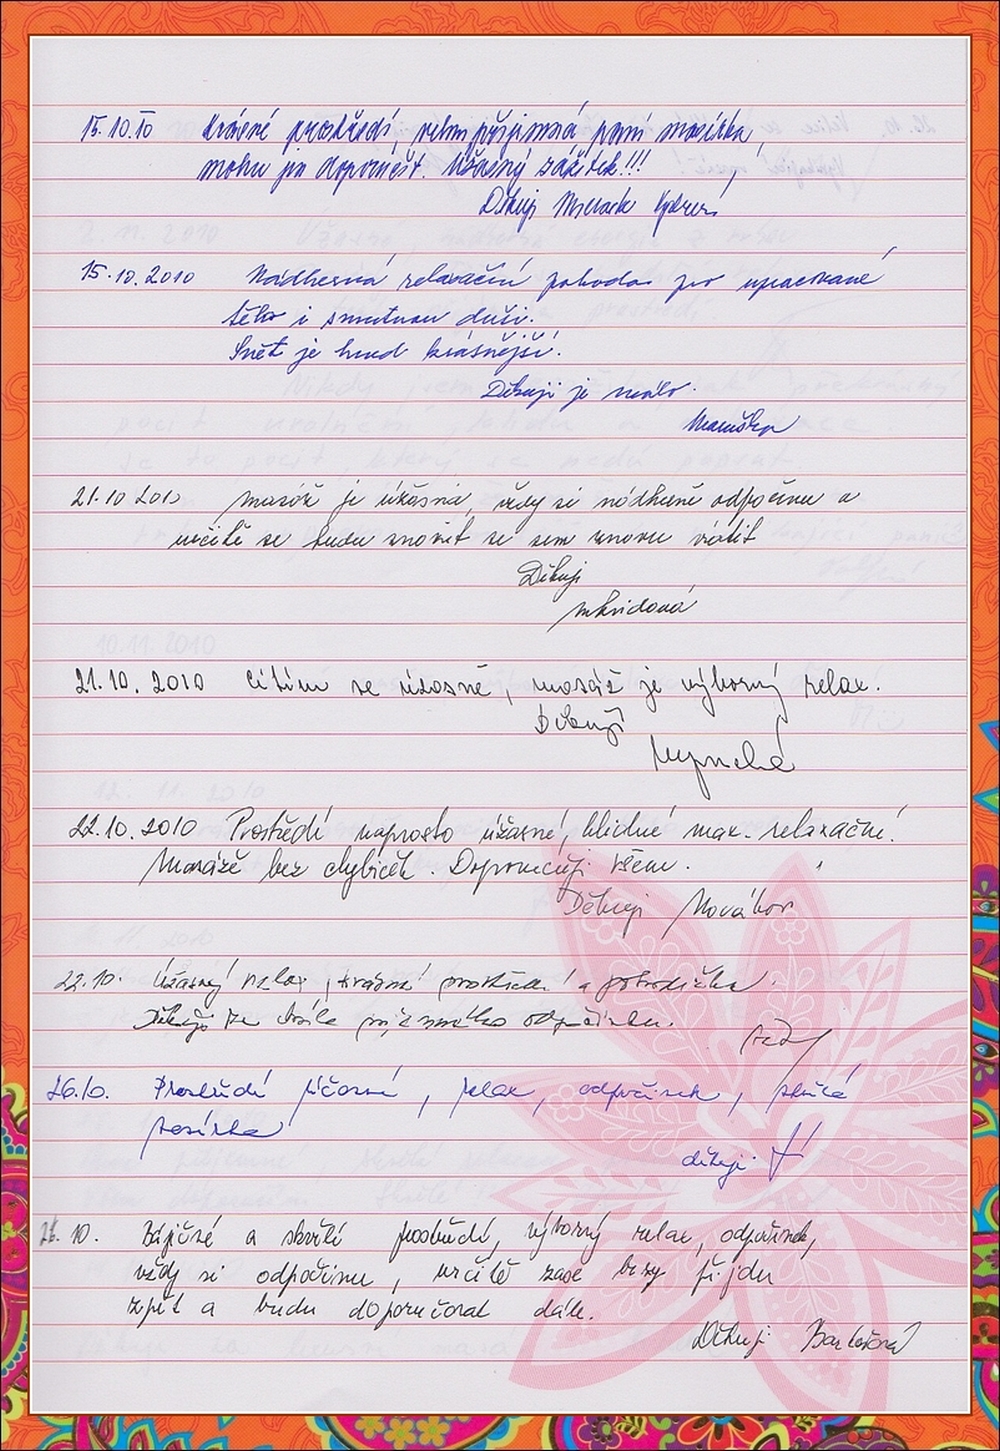 15.10.10 Krásné prostředí, velmi příjemná paní masérka,
mohu jen doporučit. Úžasný zážitek!!!
Děkuji
15.10.2010 Nádherná relaxační pohoda pro upracované
tělo i smutnou duši.
Svět je hned krásnější.
Děkuji je málo.
Maruška
21.10 2010 masáž je úžasná, vždy si nádherně odpočinu a
určitě se budu snažit se sem znovu vrátit
Děkuji
21.10.2010 Cítím se úžasně, masáž je výborný relax.
Děkuji
22.10.2010 Prostředí naprosto úžasné, klidné max. relaxační.
Masáže bez chybiček. Doporučuji všem.
Děkuji Novákov
22.10. Úžasný relax, krásné prostředí a
Děkuji za odpočinku.
26.10. Prostředí úžasné, relax, odpočinek, skvělá
masérka
děkuji
26.10. Báječné a skvělé prostředí, výborný relax, odpočinek,
vždy si odpočinu, určitě zase brzy přijdu
zpět a budu doporučovat dále.
Děkuji